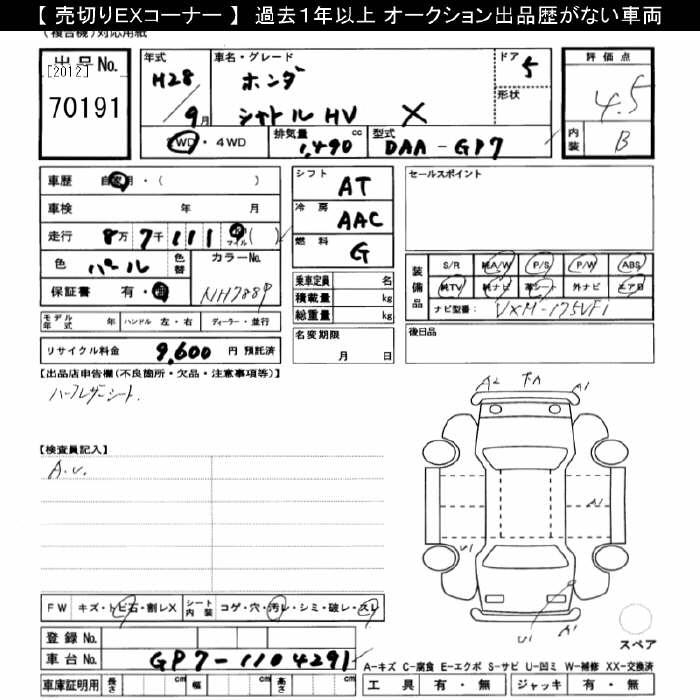 【 売切りEXコーナー 】 過去1年以上 オークション出品歴がない車両
(複合機)対応用紙
出品No.
[2012]
70191
年式
H28
9月
車名・グレード
ホンダ
シャトル HV X
ドア 5
形状
評価点
4.5
内装 B
2WD・4WD
排気量 1,490 cc
型式 DAA-GP7
車歴 自家用・( )
車検 年 月
走行 8万7千111 マイル ( )
色 パール
色替
カラーNo.
NH788P
保証書 有・無
シフト AT
冷房 AAC
燃料 G
セールスポイント
装備品
S/R 純A/W P/S P/W ABS
純TV 純ナビ 革シート 外ナビ エアB
ナビ型番: VXM-175VFi
乗車定員 名
積載量 kg
総重量 kg
モデル年式 年 ハンドル 左・右 ディーラー・並行
リサイクル料金 9,600 円 預託済
名変期限
月 日
後日品
【出品店申告欄(不良箇所・欠品・注意事項等)】
ハーフレザーシート.
【検査員記入】
A.U.
A2 A1
A1
U1
U1 A1
FW キズ・トビ石・割レX シート内装 コゲ・穴・汚レ・シミ・破レ・スレ
登録No.
車台No. GP7-1104291
スペア
A-キズ C-腐食 E-エクボ S-サビ U-凹ミ W-補修 XX-交換済
車庫証明用 長さ cm 幅 cm 高さ cm
工具 有・無 ジャッキ 有・無